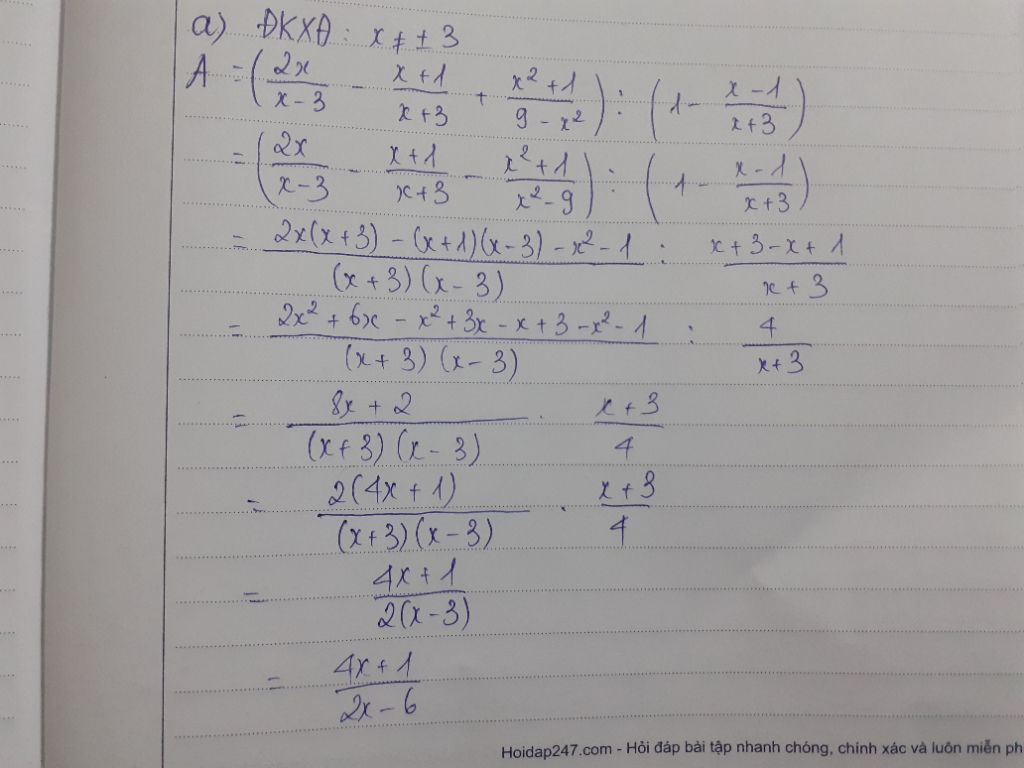 a) ĐKXĐ: x ≠ ± 3
A = (2x/(x-3) - (x+1)/(x+3) + (x²+1)/(9-x²)) : (1 - (x-1)/(x+3))
= (2x/(x-3) - (x+1)/(x+3) - (x²+1)/(x²-9)) : (1 - (x-1)/(x+3))
= (2x(x+3) - (x+1)(x-3) - x² - 1)/((x+3)(x-3)) : (x+3-x+1)/(x+3)
= (2x² + 6x - x² + 3x - x + 3 - x² - 1)/((x+3)(x-3)) : 4/(x+3)
= (8x+2)/((x+3)(x-3)) . (x+3)/4
= 2(4x+1)/((x+3)(x-3)) . (x+3)/4
= (4x+1)/(2(x-3))
= (4x+1)/(2x-6)
Hoidap247.com - Hỏi đáp bài tập nhanh chóng, chính xác và luôn miễn ph